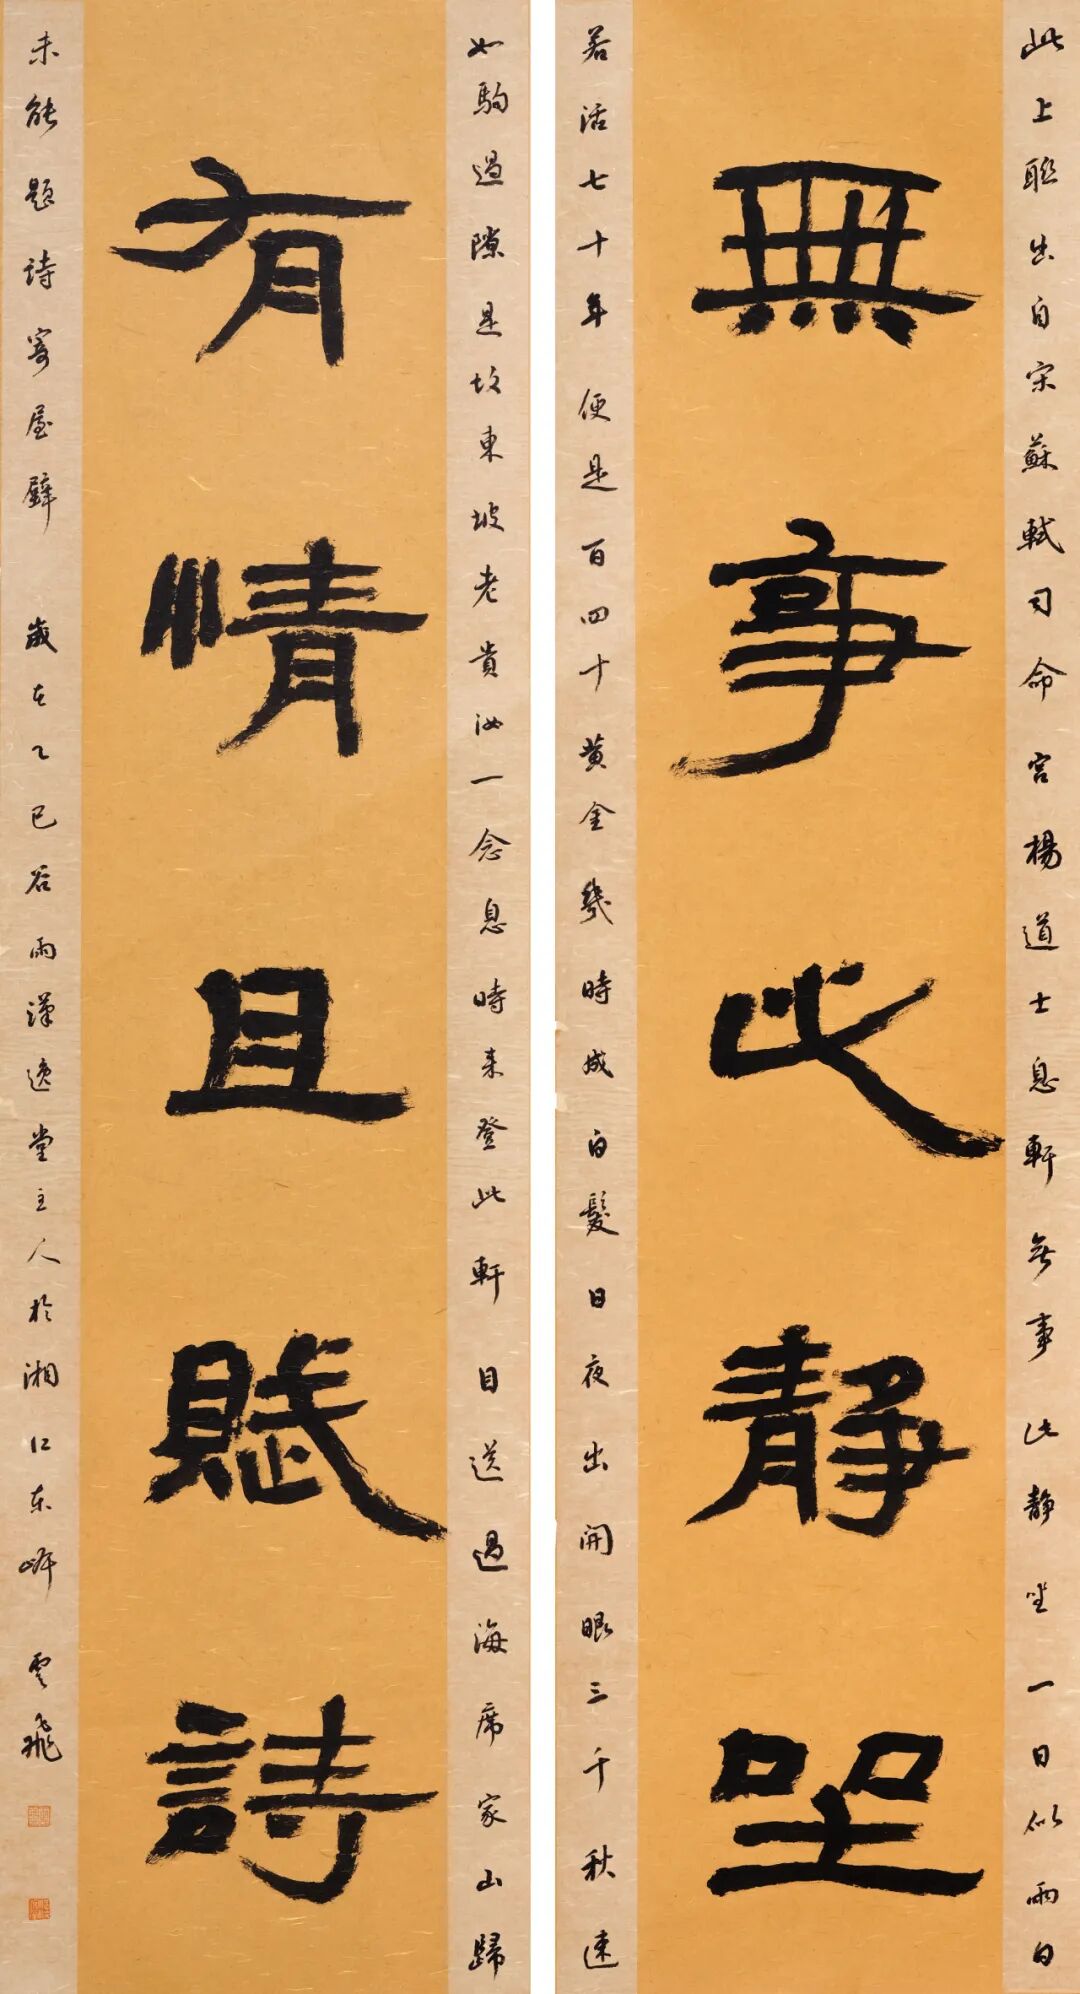 此上联出自宋蘇軾司命宮楊道士息軒无事此静坐一日似兩日
無事此靜坐
若活七十年便是百四十黄金幾時成白髮日夜出開眼三千秋速
如駒過隙是故東坡老貴汝一念息時来登此軒目送過海席家山歸
有情且賦詩
未能題詩寄屋壁 歲在乙巳谷雨漢逸堂主人於湘江东岸 雲飛